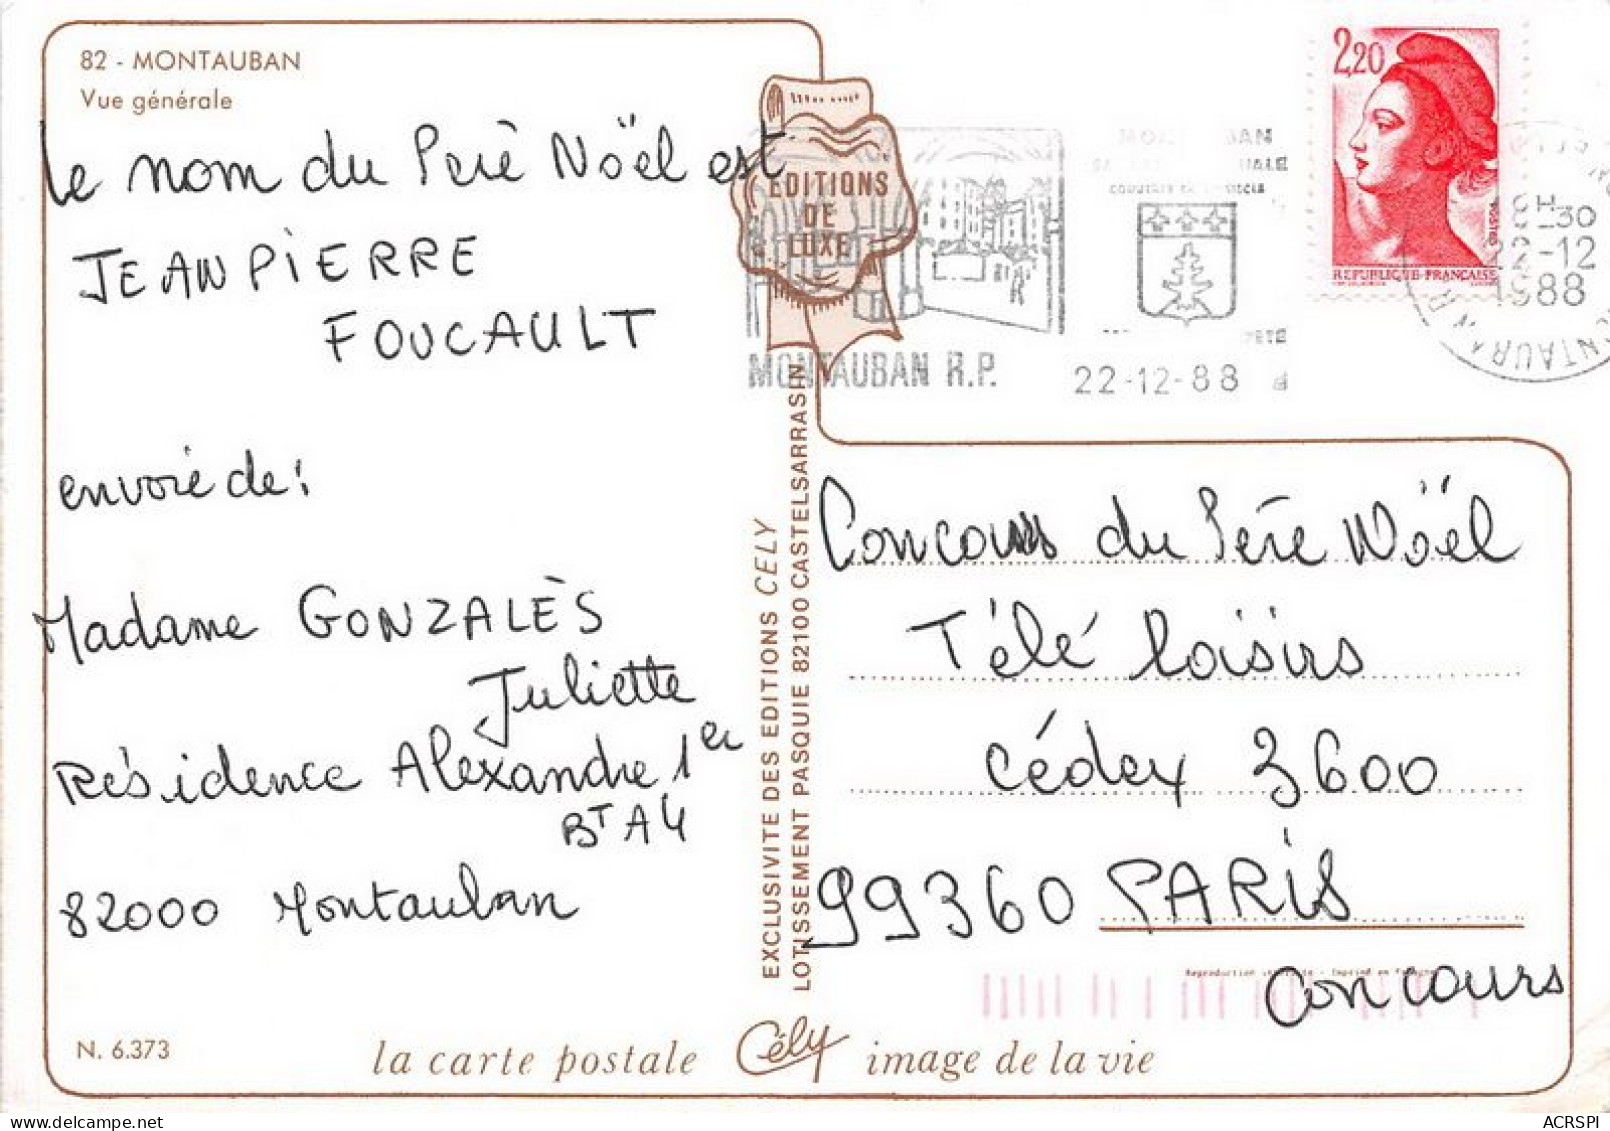 82 - MONTAUBAN
Vue générale
Le nom du Perè Nöel est
JEAN PIERRE
FOUCAULT
envoie de :
Madame GONZALÈS
Juliette
Résidence Alexandre 1er
BT A4
82000 Montauban
N. 6.373
EDITIONS
DE
LUXE
EXCLUSIVITE DES EDITIONS CELY
LOTISSEMENT PASQUIE 82100 CASTELSARRASIN
MONTAUBAN R.P.
22-12-88
2,20
POSTES
REPUBLIQUE-FRANÇAISE
8H30
22-12
1988
Concours du Père Nöel
Télé loisirs
Cédex 3600
99360 PARIS
Concours
la carte postale Cély image de la vie
ACRSPI